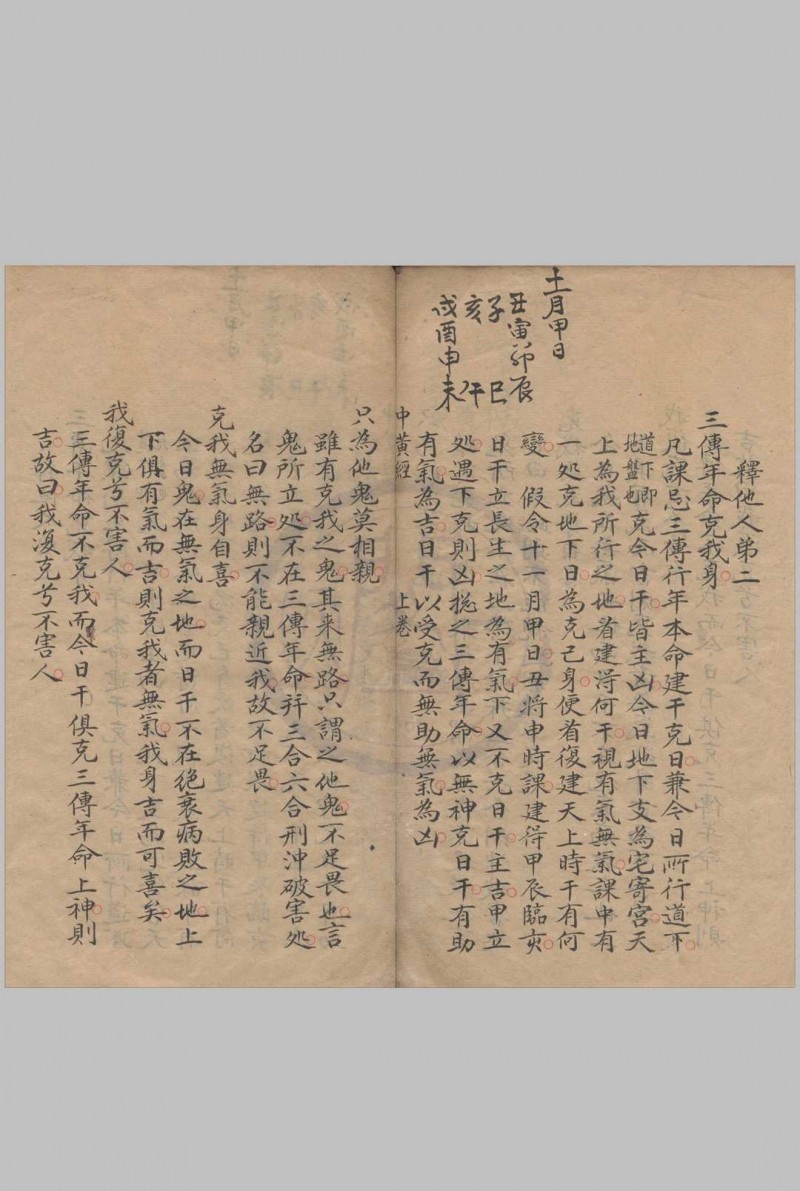 十一月甲日
丑寅卯辰
子　　巳
亥　　午
戌酉申未
釋他人第二
三傳年命克我身
凡課忌三傳行年本命建干克日兼今日所行道下
道下即地盤也克今日干皆主凶今日地下支為宅寄宮天
上為我所行之地看建得何干視有氣無氣課中有
一処克地下日為克己身便看復建天上時干有何
變　假令十一月甲日丑將申時課建得甲辰臨亥
日干立長生之地為有氣下又不克日干主吉甲立
処遇下克則凶揔之三傳年命以無神克日干有助
有氣為吉日干以受克而無助無氣為凶
中黃經　上卷
只為他鬼莫相親
雖有克我之鬼其来無路只謂之他鬼不足畏也言
鬼所立処不在三傳年命并三合六合刑沖破害処
名曰無路則不能親近我故不足畏
克我無氣身自喜
今日鬼在無氣之地而日干不在絕衰病敗之地上
下俱有氣而吉則克我者無氣我身吉而可喜矣
我復克兮不害人
三傳年命不克我而今日干俱克三傳年命上神則
吉故曰我復克兮不害人